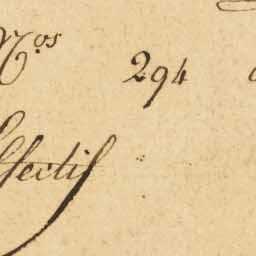 N.os 294
Effectif